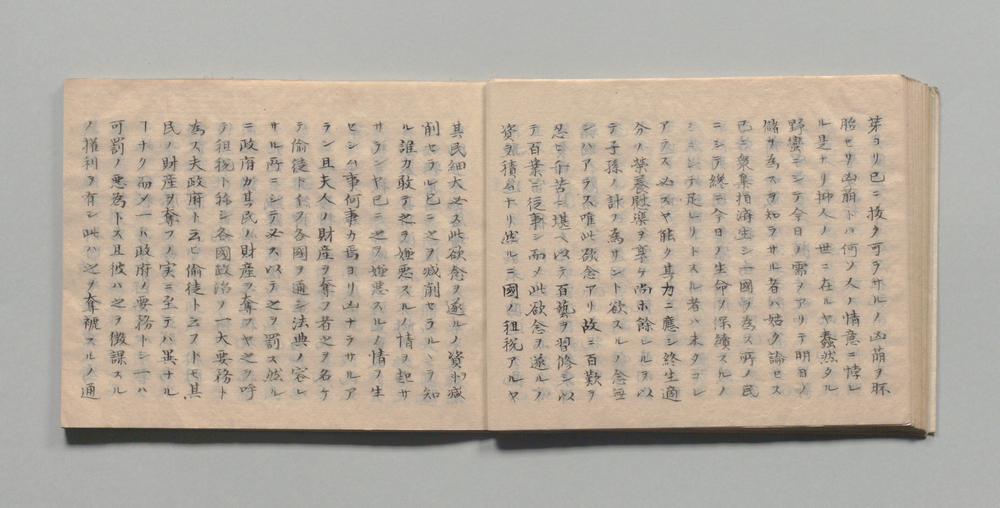 芽ヨリ已ニ拔ク可ラサルノ凶萠ヲ胚
胎セリ凶萠トハ何ノ人ノ情意ニ悖レ
ル是ナリ抑人ノ世ニ在ルヤ蠢然タル
野蠻ニシテ今日ノ需ヲアリテ明日ノ
儲ヲ為スヲ知ラサル者ハ姑ク論セス
已ニ衆集相濟生シ一國ヲ為ス所ノ民
ニシテ終ニ今日ノ生命ヲ保續スルノ
ミニシテ足レリトスル者ハ未タコレ
アラス必スヤ能ク其力ニ應シ終生適
分ノ榮養財樂ヲ享ケ尚ホ餘シルヲ以
テ子孫ノ計ヲ為サント欲スルノ念無
ンハアラス唯此欲念アリ故ニ百歎ヲ
忍ヒ千苦ニ堪ヘ以テ百藝ヲ習修シ以
テ百業ニ從事シ而メ此欲念ヲ遂ルノ
資ヲ積ムナリ然ルニ國ノ租税アルヤ
其民細大必ス此欲念ヲ遂ルノ資ヲ減
削セラル已ニ之ヲ減削セラルヽヲ知
ル誰カ敢テ之ヲ嫌悪スルノ情ヲ起サ
サランヤ已ニ之ヲ嫌悪スルノ情ヲ生
セシム事何事カ焉ヨリ凶ナラサルア
ラン且夫人ノ財産ヲ奪フ者之ヲ名ケ
テ偷徒ト云フ各國ヲ通シ法典ノ容レ
サル所ニシテ必ス以テ之ヲ罰ス然ル
ニ政府カ其民ノ財産ヲ奪フヤ之ヲ呼
テ租税ト称シ各國政治ノ一大要務ト
為ス夫政府ト云ヒ偷徒ト云フトモ其
民ノ財産ヲ奪フノ実ニ至テハ異ナル
ーナク而メ一ハ政府ノ要務トシ一ハ
可罰ノ悪為トス且彼ハ之ヲ徴課スル
ノ權利ヲ有シ此ハ之ヲ奪褫スルノ通